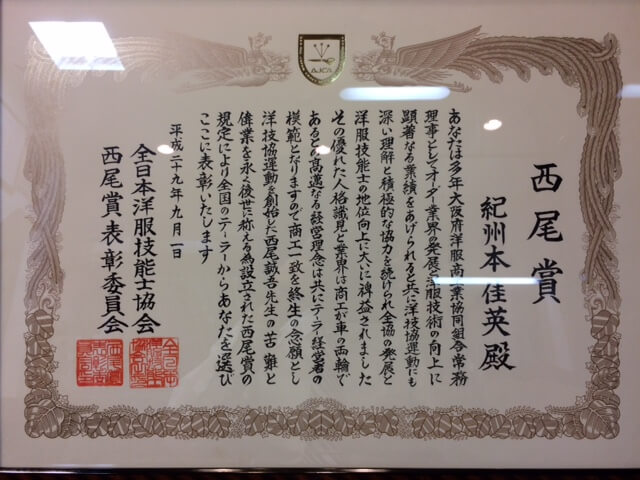 AJCA
西尾賞
紀州本 佳英 殿
あなたは多年大阪府洋服商工業協同組合常務
理事としてオーダー業界の発展と洋服技術の向上に
顕著なる業績をあげられると共に洋技協運動にも
深い理解と積極的な協力を続けられ全協の発展と
洋服技能士の地位向上に大いに裨益されました
その優れた人格識見と業界は商工が車の両輪で
あるとの高邁なる経営理念は共にテーラー経営者の
模範となりますので商工一致を終生の念願とし
洋技協運動を創始した西尾誠吾先生の苦難と
偉業を永く後世に称える為設立された西尾賞の
規定により全国のテーラーからあなたを選び
ここに表彰いたします
平成二十九年九月一日
全日本洋服技能士協会
西尾賞表彰委員会